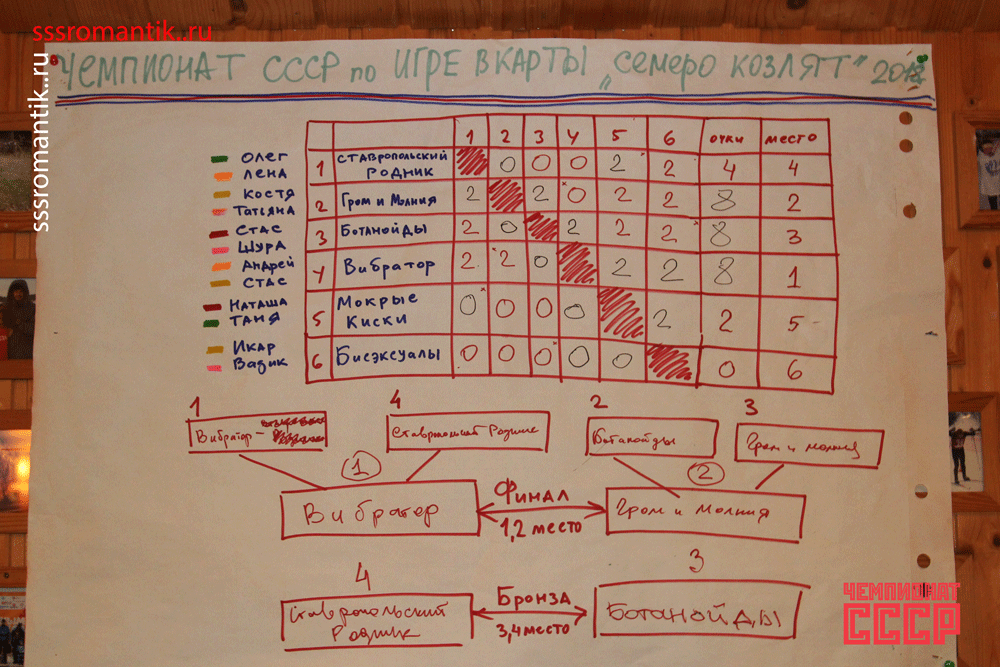 sssromantik.ru
sssromantik.ru
Чемпионат СССР по игре в карты „Семеро козлят"
1 2 3 4 5 6 очки место
Олег
Лена
1 Ставропольский Родник 0 0 0 2 2 4 4
Костя
Татьяна
2 Гром и Молния 2 2 0 2 2 8 2
Стас
Шура
3 Ботанойды 2 0 2 2 2 8 3
Андрей
Стас
4 Вибратор 2 2 0 2 2 8 1
Наташа
Таня
5 Мокрые Киски 0 0 0 0 2 2 5
Икар
Вадик
6 Бисэксуалы 0 0 0 0 0 0 6
1 4 2 3
Вибратор - Ставропольский Родник Ботанойды Гром и молния
1 2
Вибратор Финал Гром и Молния
1,2 место
4 3
Ставропольский Родник Бронза Ботанойды
3,4 место
ЧЕМПИОНАТ
СССР